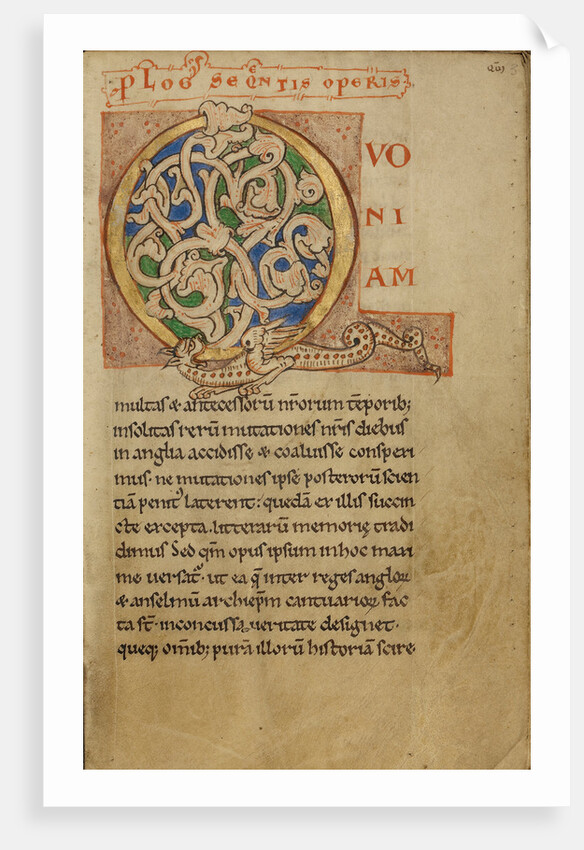 PLOGꝰ SEQ̄NTIS OPERIS
QVO
NI
AM
multas & antecessorū nr̄orum tēporib;
insolitas rerū mutationes nr̄is diebus
in anglia accidisse & coaluisse conspexi
mus· ne mutationes ipse posterorū scien
tiā penitꝰ laterent: quedā ex illis succin
cte excepta. litterarū memorię tradi
dimus Sed qm̄ opus ipsum in hoc maxi
me versat᷑· ut ea q̄ inter reges angloꝝ
& anselmū archiep̄m cantuarioꝝ fac
ta st̄· inconcussa veritate designet·
queq; om̄ib; purā illorū historiā scire·